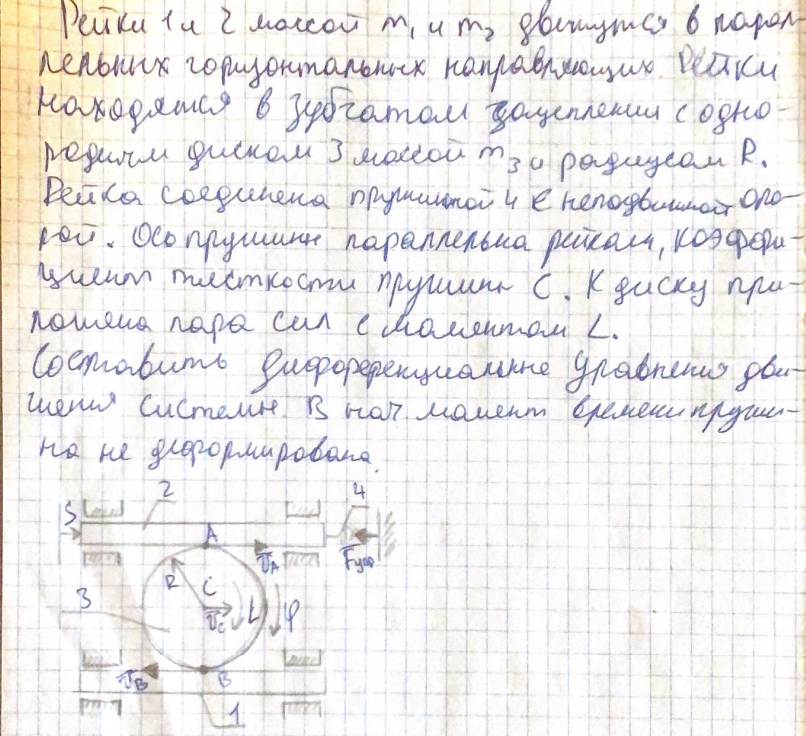 Рейки 1 и 2 массой m₁ и m₂ движутся в парал-
лельных горизонтальных направляющих. Рейки
находятся в зубчатом зацеплении с одно-
родным диском 3 массой m₃ и радиусом R.
Рейка соединена пружиной 4 с неподвижной опо-
рой. Ось пружины параллельна рейкам, коэффи-
циент жесткости пружины C. К диску при-
ложена пара сил с моментом L.
Составить дифференциальные уравнения дви-
жения системы. В нач. момент времени пружи-
на не деформирована.
2 4
S A
V_A F_упр
R C
3 V_C L φ
V_B B
1